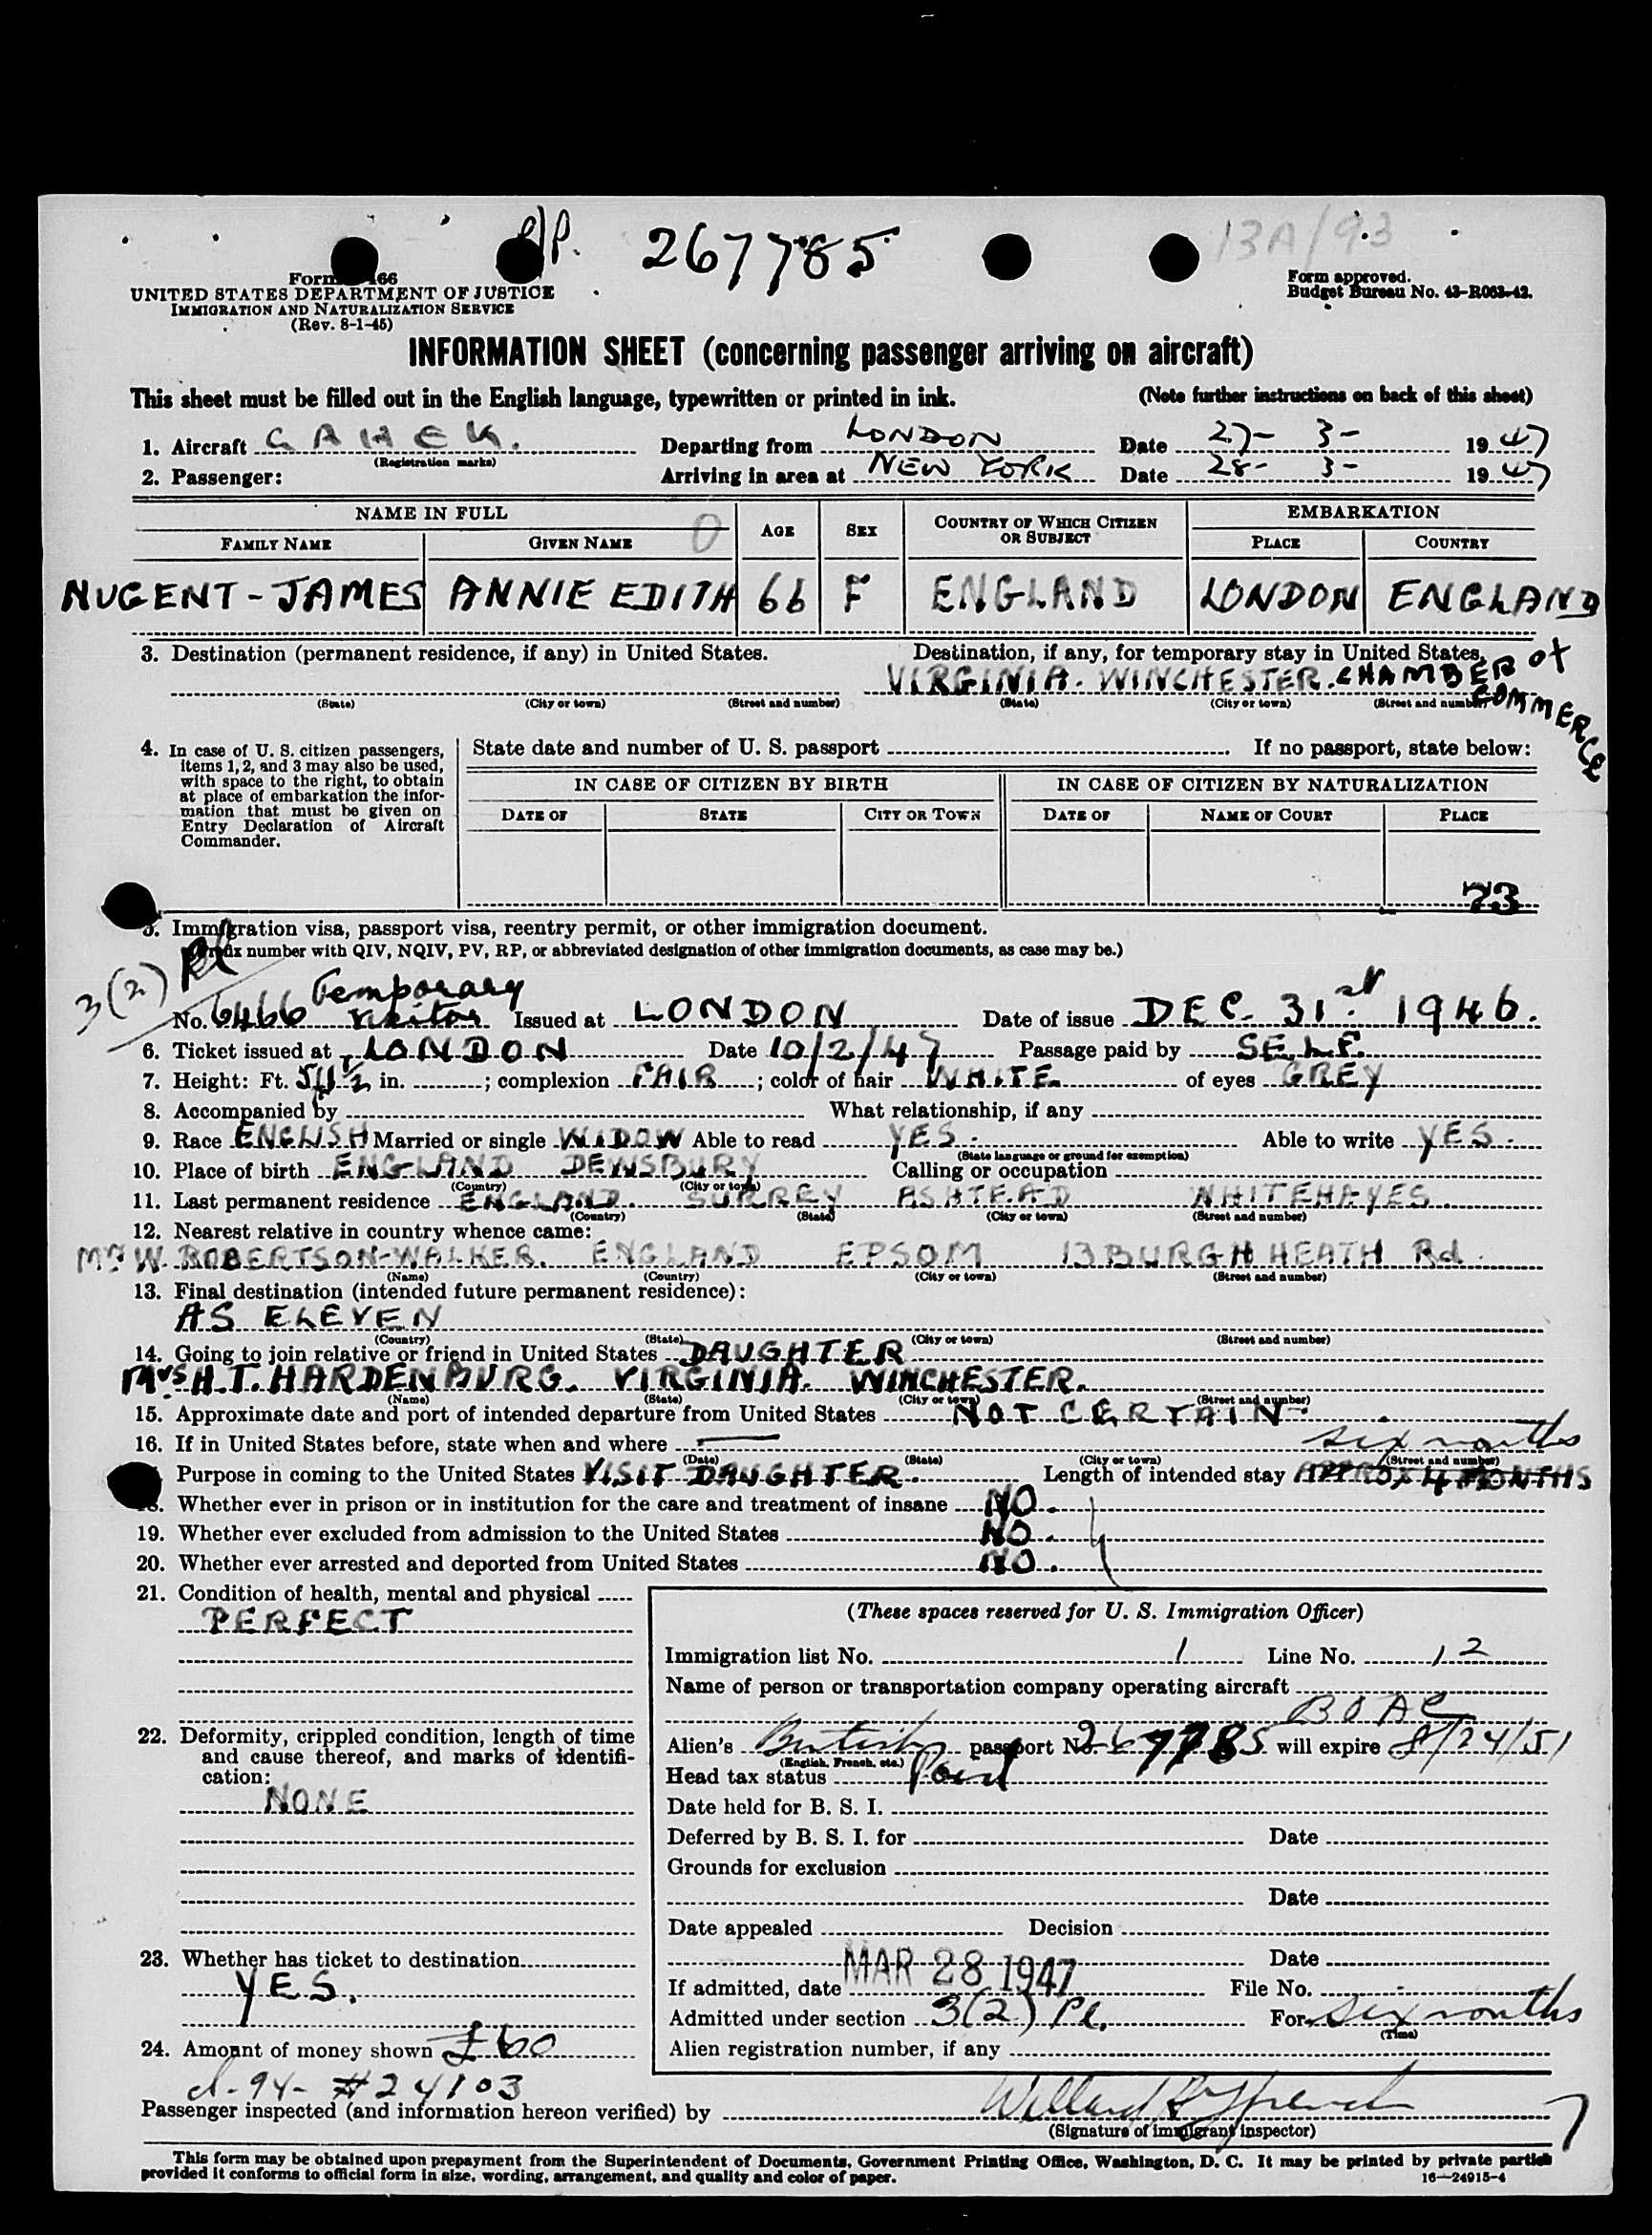 c/p. 267785 13A/93
Form 66
UNITED STATES DEPARTMENT OF JUSTICE
IMMIGRATION AND NATURALIZATION SERVICE
(Rev. 8-1-45)
Form approved.
Budget Bureau No. 43-R083-42.
INFORMATION SHEET (concerning passenger arriving on aircraft)
This sheet must be filled out in the English language, typewritten or printed in ink. (Note further instructions on back of this sheet)
1. Aircraft G A H E K. Departing from LONDON Date 27- 3- 1947
(Registration marks)
2. Passenger: Arriving in area at NEW YORK Date 28- 3- 1947
NAME IN FULL 0 AGE SEX COUNTRY OF WHICH CITIZEN OR SUBJECT EMBARKATION
FAMILY NAME GIVEN NAME PLACE COUNTRY
NUGENT-JAMES ANNIE EDITH 66 F ENGLAND LONDON ENGLAND
3. Destination (permanent residence, if any) in United States. Destination, if any, for temporary stay in United States.
VIRGINIA. WINCHESTER. CHAMBER OF COMMERCE
(State) (City or town) (Street and number) (State) (City or town) (Street and number)
4. In case of U. S. citizen passengers, items 1, 2, and 3 may also be used, with space to the right, to obtain at place of embarkation the information that must be given on Entry Declaration of Aircraft Commander.
State date and number of U. S. passport If no passport, state below:
IN CASE OF CITIZEN BY BIRTH IN CASE OF CITIZEN BY NATURALIZATION
DATE OF STATE CITY OR TOWN DATE OF NAME OF COURT PLACE
73
5. Immigration visa, passport visa, reentry permit, or other immigration document.
number with QIV, NQIV, PV, RP, or abbreviated designation of other immigration documents, as case may be.)
3(2) Pl
No. 6466 Temporary Visitor Issued at LONDON Date of issue DEC. 31st 1946.
6. Ticket issued at LONDON Date 10/2/47 Passage paid by SELF.
7. Height: Ft. 5/1½ in. ; complexion FAIR ; color of hair WHITE of eyes GREY
8. Accompanied by What relationship, if any
9. Race ENGLISH Married or single WIDOW Able to read YES. Able to write YES.
(State language or ground for exemption)
10. Place of birth ENGLAND DEWSBURY Calling or occupation
(Country) (City or town)
11. Last permanent residence ENGLAND. SURREY ASHTEAD WHITEHAYES.
(Country) (State) (City or town) (Street and number)
12. Nearest relative in country whence came:
Mrs W. ROBERTSON-WALKER. ENGLAND EPSOM 13 BURGH HEATH Rd.
(Name) (Country) (City or town) (Street and number)
13. Final destination (intended future permanent residence):
AS ELEVEN
(Country) (State) (City or town) (Street and number)
14. Going to join relative or friend in United States DAUGHTER
Mrs H.T. HARDENBURG. VIRGINIA. WINCHESTER.
(Name) (State) (City or town) (Street and number)
15. Approximate date and port of intended departure from United States NOT CERTAIN
16. If in United States before, state when and where
(Date) (State) (City or town) (Street and number)
six months
Purpose in coming to the United States VISIT DAUGHTER. Length of intended stay APPROX 4 MONTHS
18. Whether ever in prison or in institution for the care and treatment of insane NO.
19. Whether ever excluded from admission to the United States NO.
20. Whether ever arrested and deported from United States NO.
21. Condition of health, mental and physical
PERFECT
22. Deformity, crippled condition, length of time and cause thereof, and marks of identification:
NONE
23. Whether has ticket to destination
YES.
24. Amount of money shown £60
(These spaces reserved for U. S. Immigration Officer)
Immigration list No. 1 Line No. 12
Name of person or transportation company operating aircraft
BOAC
Alien's British passport No. 267785 will expire 8/24/51
(English, French, etc.)
Head tax status Paid
Date held for B. S. I.
Deferred by B. S. I. for Date
Grounds for exclusion
Date
Date appealed Decision
Date
If admitted, date MAR 28 1947 File No.
Admitted under section 3(2) Pl. For six months
(Time)
Alien registration number, if any
cl-94- #24103
Passenger inspected (and information hereon verified) by Willard
(Signature of immigrant inspector)
This form may be obtained upon prepayment from the Superintendent of Documents, Government Printing Office, Washington, D. C. It may be printed by private parties
provided it conforms to official form in size, wording, arrangement, and quality and color of paper. 16—24915-4